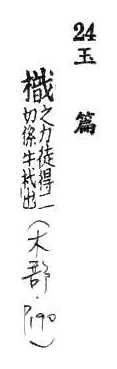 24 玉篇
樴 之力徒得二
切係牛杙也
(木部·P190)